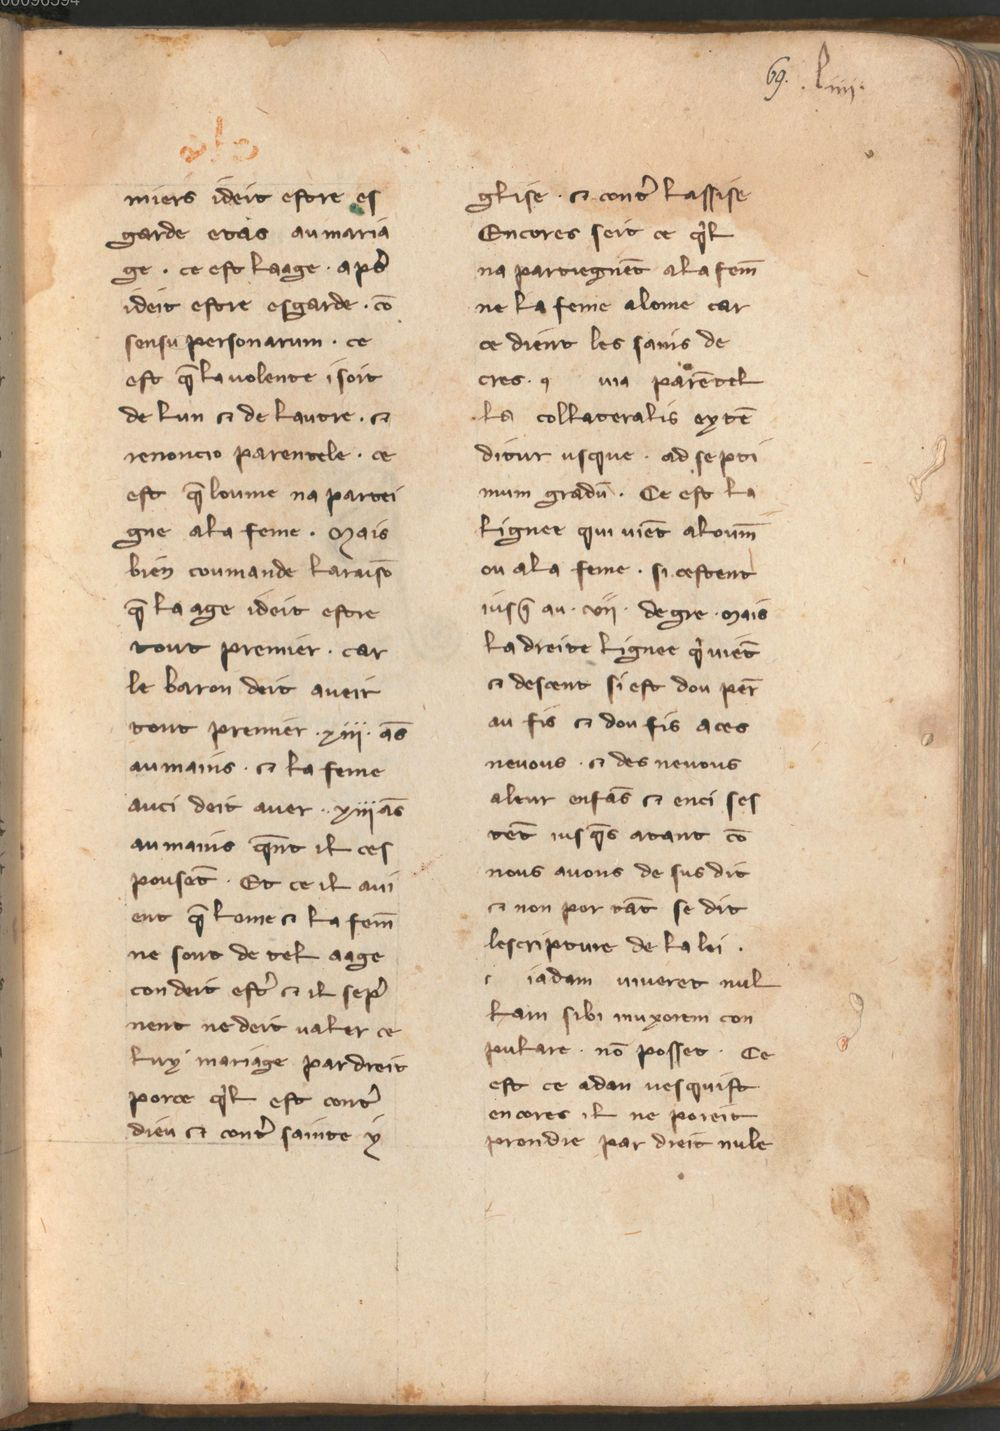 69. . liiii.
miers ideit estre es
garde etas au maria
ge . ce est laage . apˢ
ideit estre esgarde . cō
sensu personarum . ce
est q̄ lavolente i soit
de lun ⁊ de lautre . ⁊
renoncio parentele . ce
est q̄ loume na partei
gne ala feme . Mais
bien coumande laraisō
q̄ la age ideit estre
tout premier . car
le baron deit aveir
tout premier . xiii . ās
aumains . ⁊ la feme
auci deit aver . xiii ās
aumains q̄nt il ces
pousēt . Et ce il avi
ent q̄ lome ⁊ la fem̄
ne sont de tel aage
con deit est͛ ⁊ il sep͛
nent ne deit valer ce
luy mariage par dreit
porce qͥl est cont͛
dieu ⁊ cont͛ sainte y
glise . ⁊ cont͛ lassise
Encores seit ce qͥl
na partiegnēt ala fem̄
ne la feme alome car
ce dient les sains de
cres . ꝯ via parētel
la collateralis extē
ditur usque . ad septi
mum gradū . Ce est la
lignee qui viēt aloum̄
ou ala feme . si cestent
iusq̄ au . vii . degre . Mais
la dreite lignee qͥ viēt
⁊ descent si est dou per̄
au fis ⁊ dou fis a ces
nevous . ⁊ des nevous
aleur enfās ⁊ enci ses
tēt iusq̄s atant cō
nous avons de sus dit
⁊ non por tāt se dit
lescripture de la lei .
c iadam viveret nul
lam sibi inuxorem con
pulare . nō posset . Ce
est ce adan vesquist
encores il ne poreit
prondre par dreit nule